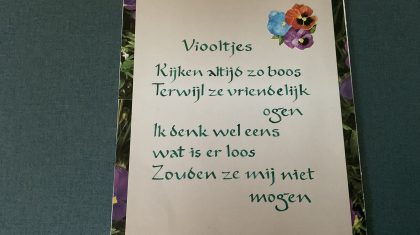 Viooltjes
Kijken altijd zo boos
Terwijl ze vriendelijk
ogen
Ik denk wel eens
wat is er loos
Zouden ze mij niet
mogen